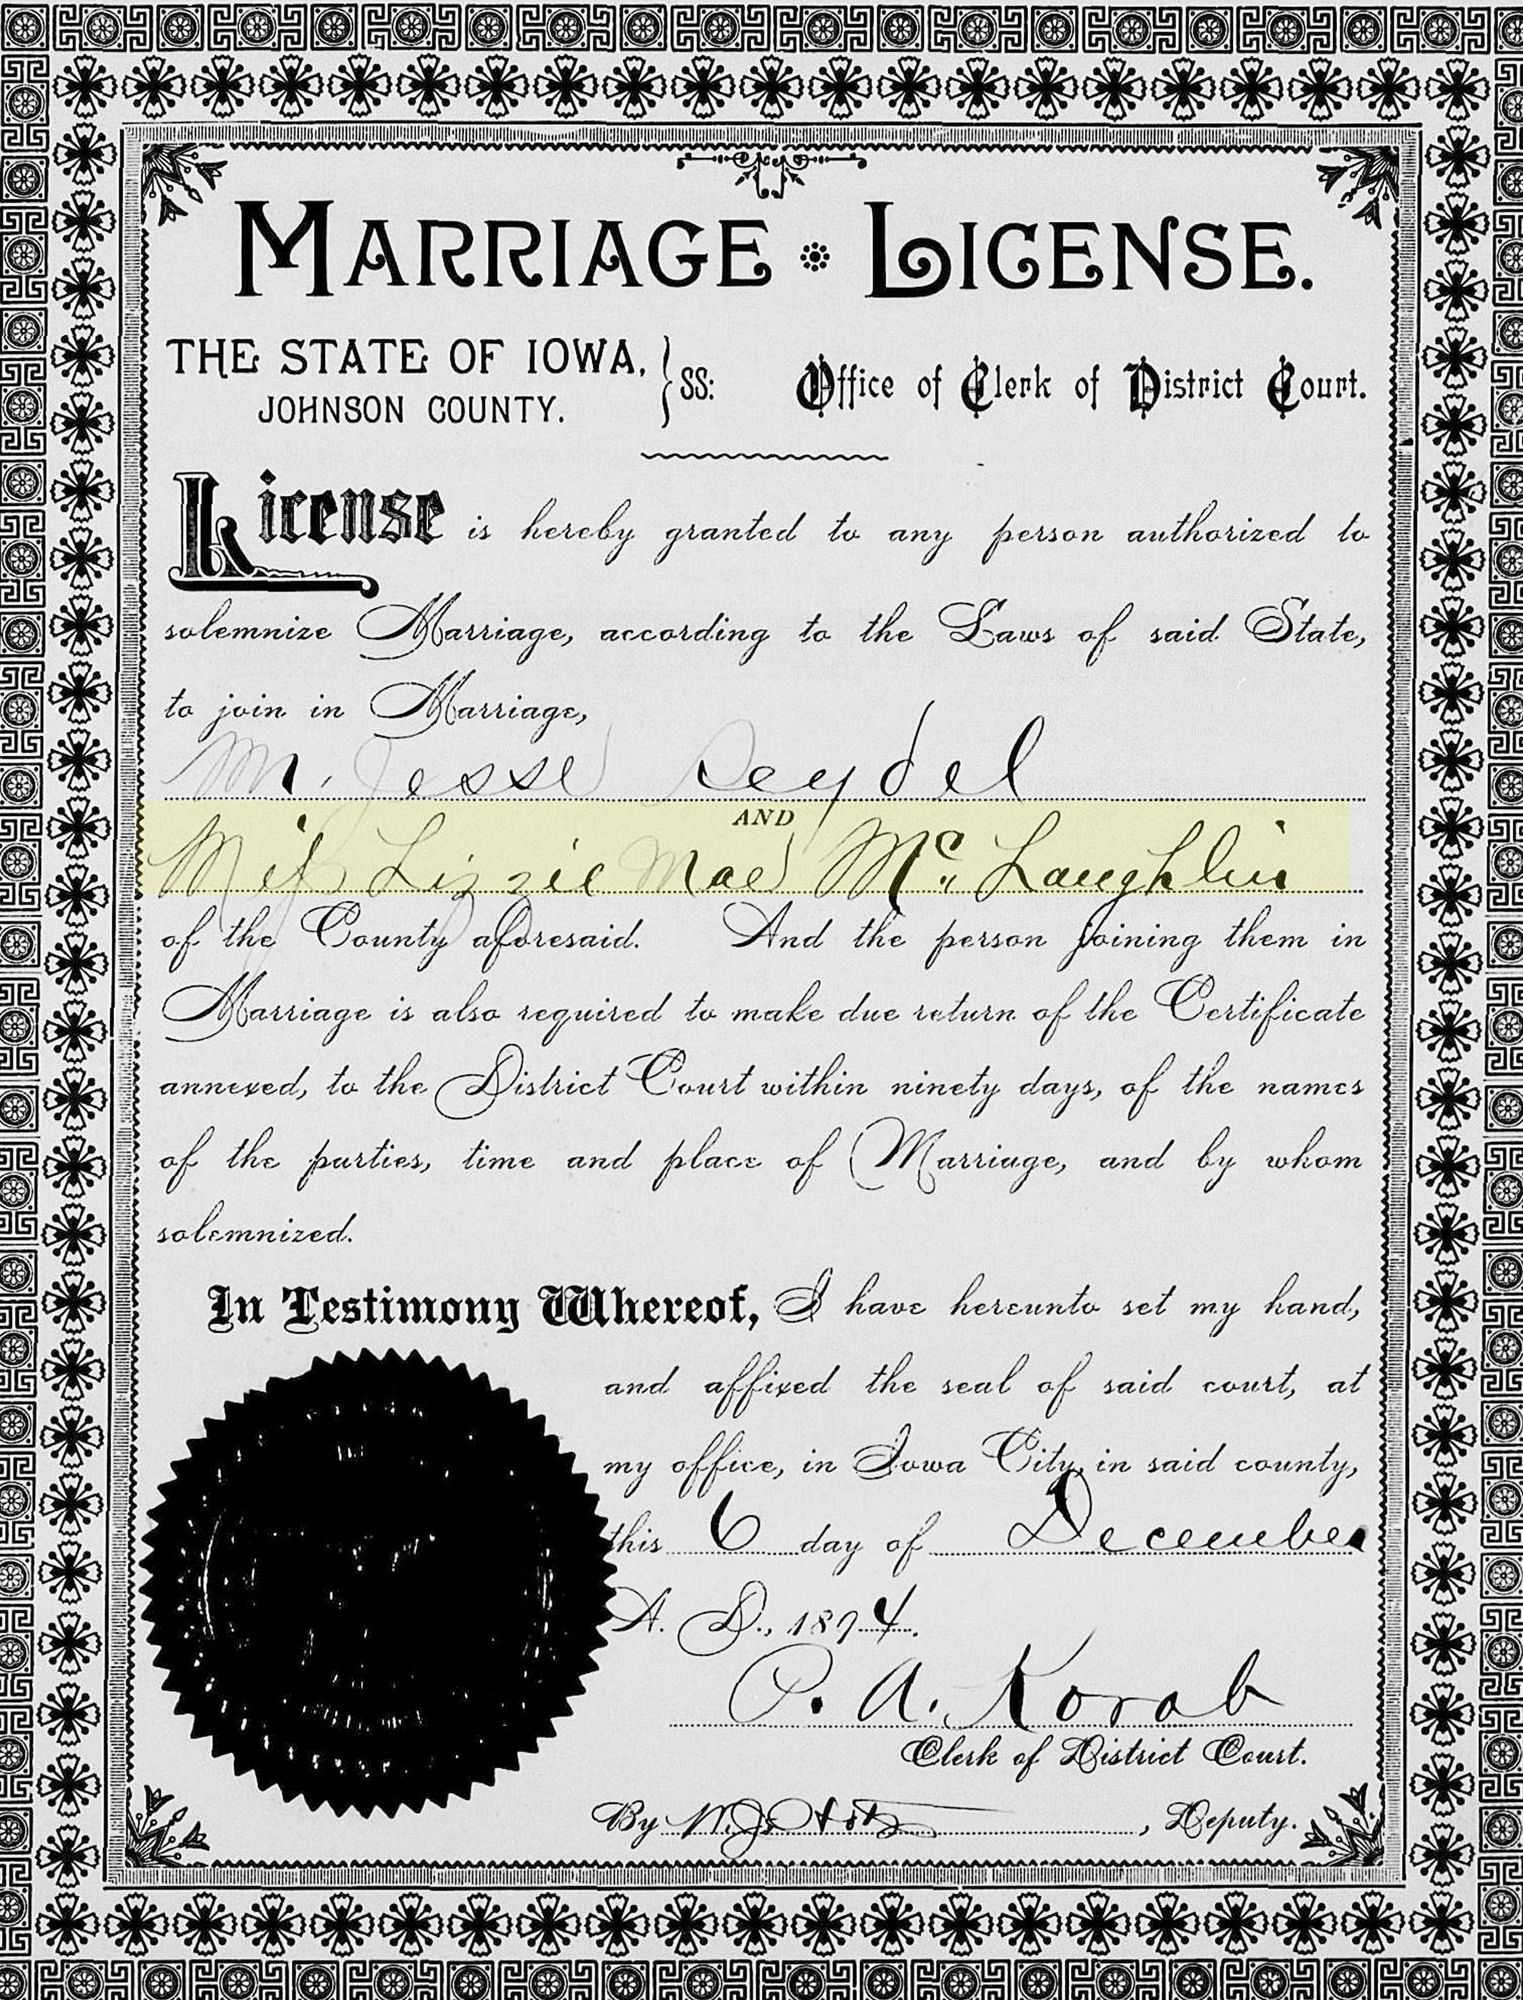 MARRIAGE LICENSE.
THE STATE OF IOWA, } SS: Office of Clerk of District Court.
JOHNSON COUNTY.
License is hereby granted to any person authorized to
solemnize Marriage, according to the Laws of said State,
to join in Marriage,
M. Jesse Seydel
AND
Miss Lizzie Mae McLaughlin
of the County aforesaid. And the person joining them in
Marriage is also required to make due return of the Certificate
annexed, to the District Court within ninety days, of the names
of the parties, time and place of Marriage, and by whom
solemnized.
In Testimony Whereof, I have hereunto set my hand,
and affixed the seal of said court, at
my office, in Iowa City, in said county,
this 6 day of December
A. D., 1894.
P. A. Korab
Clerk of District Court.
By , Deputy.